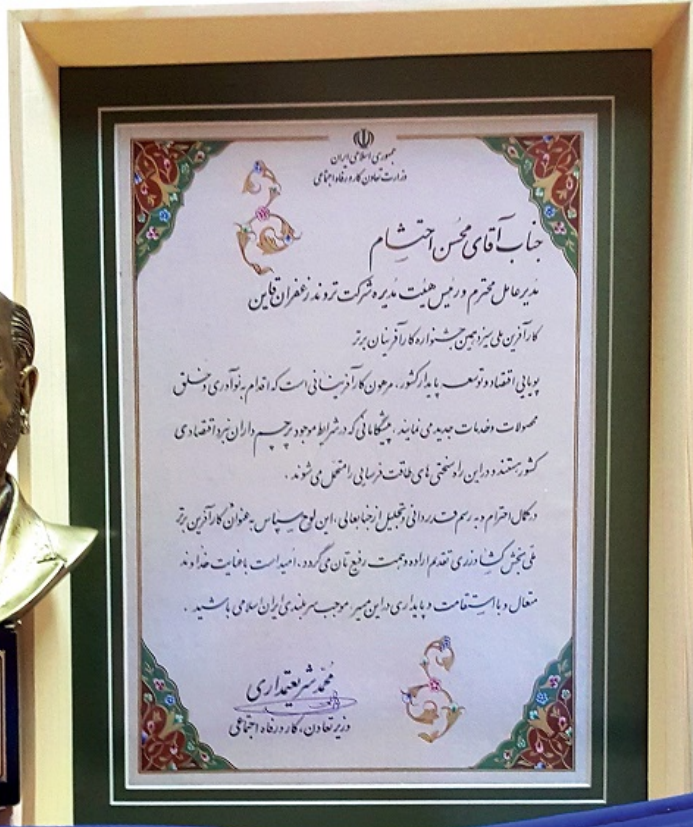 جمهوری اسلامی ایران
وزارت تعاون کار و رفاه اجتماعی
جناب آقای محسن احتشام
مدیر عامل محترم و رئیس هیئت مدیره شرکت تروند زعفران قاین
کارآفرین ملی سیزدهمین جشنواره کارآفرینان برتر
پویایی اقتصاد و توسعه پایدار کشور، مرهون کارآفرینانی است که اقدام به نوآوری و خلق
محصولات و خدمات جدید می نمایند، پیشگامانی که در شرایط موجود پرچم داران نبرد اقتصادی
کشور هستند و در این راه سختی های طاقت فرسایی را متحمل می شوند.
در کمال احترام و به رسم قدردانی و تجلیل از جنابعالی، این لوح سپاس به عنوان کارآفرین برتر
ملی بخش کشاورزی تقدیم اراده و همت رفیع تان می گردد، امید است با عنایت خداوند
متعال و با استقامت و پایداری در این مسیر، موجب سربلندی ایران اسلامی باشید.
محمد شریعتمداری
وزیر تعاون، کار و رفاه اجتماعی